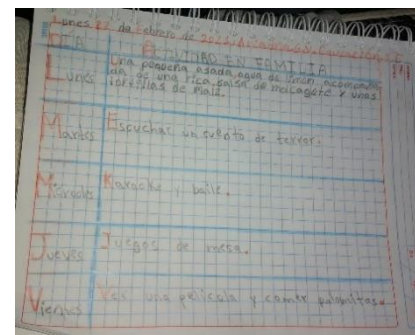 Lunes 22 de Febrero de 2021.
DIA ACTIVIDAD EN FAMILIA
Lunes Una pequeña asada, agua de limon, acompaña
da, de una rica salsa de molcagete y unas
tortillas de maiz.
Martes Escuchar un cuento de terror.
Miercoles Karaoke y baile.
Jueves Juegos de mesa.
Viernes Ver una pelicula y comer palomitas.